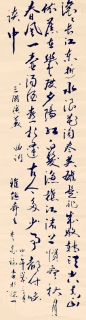 滚滚长江东逝水浪花淘尽英雄是非成败转头空青山
依旧在几度夕阳红白发渔樵江渚上惯看秋月
春风一壶浊酒喜相逢古今多少事都付笑
谈中 三国演义曲词